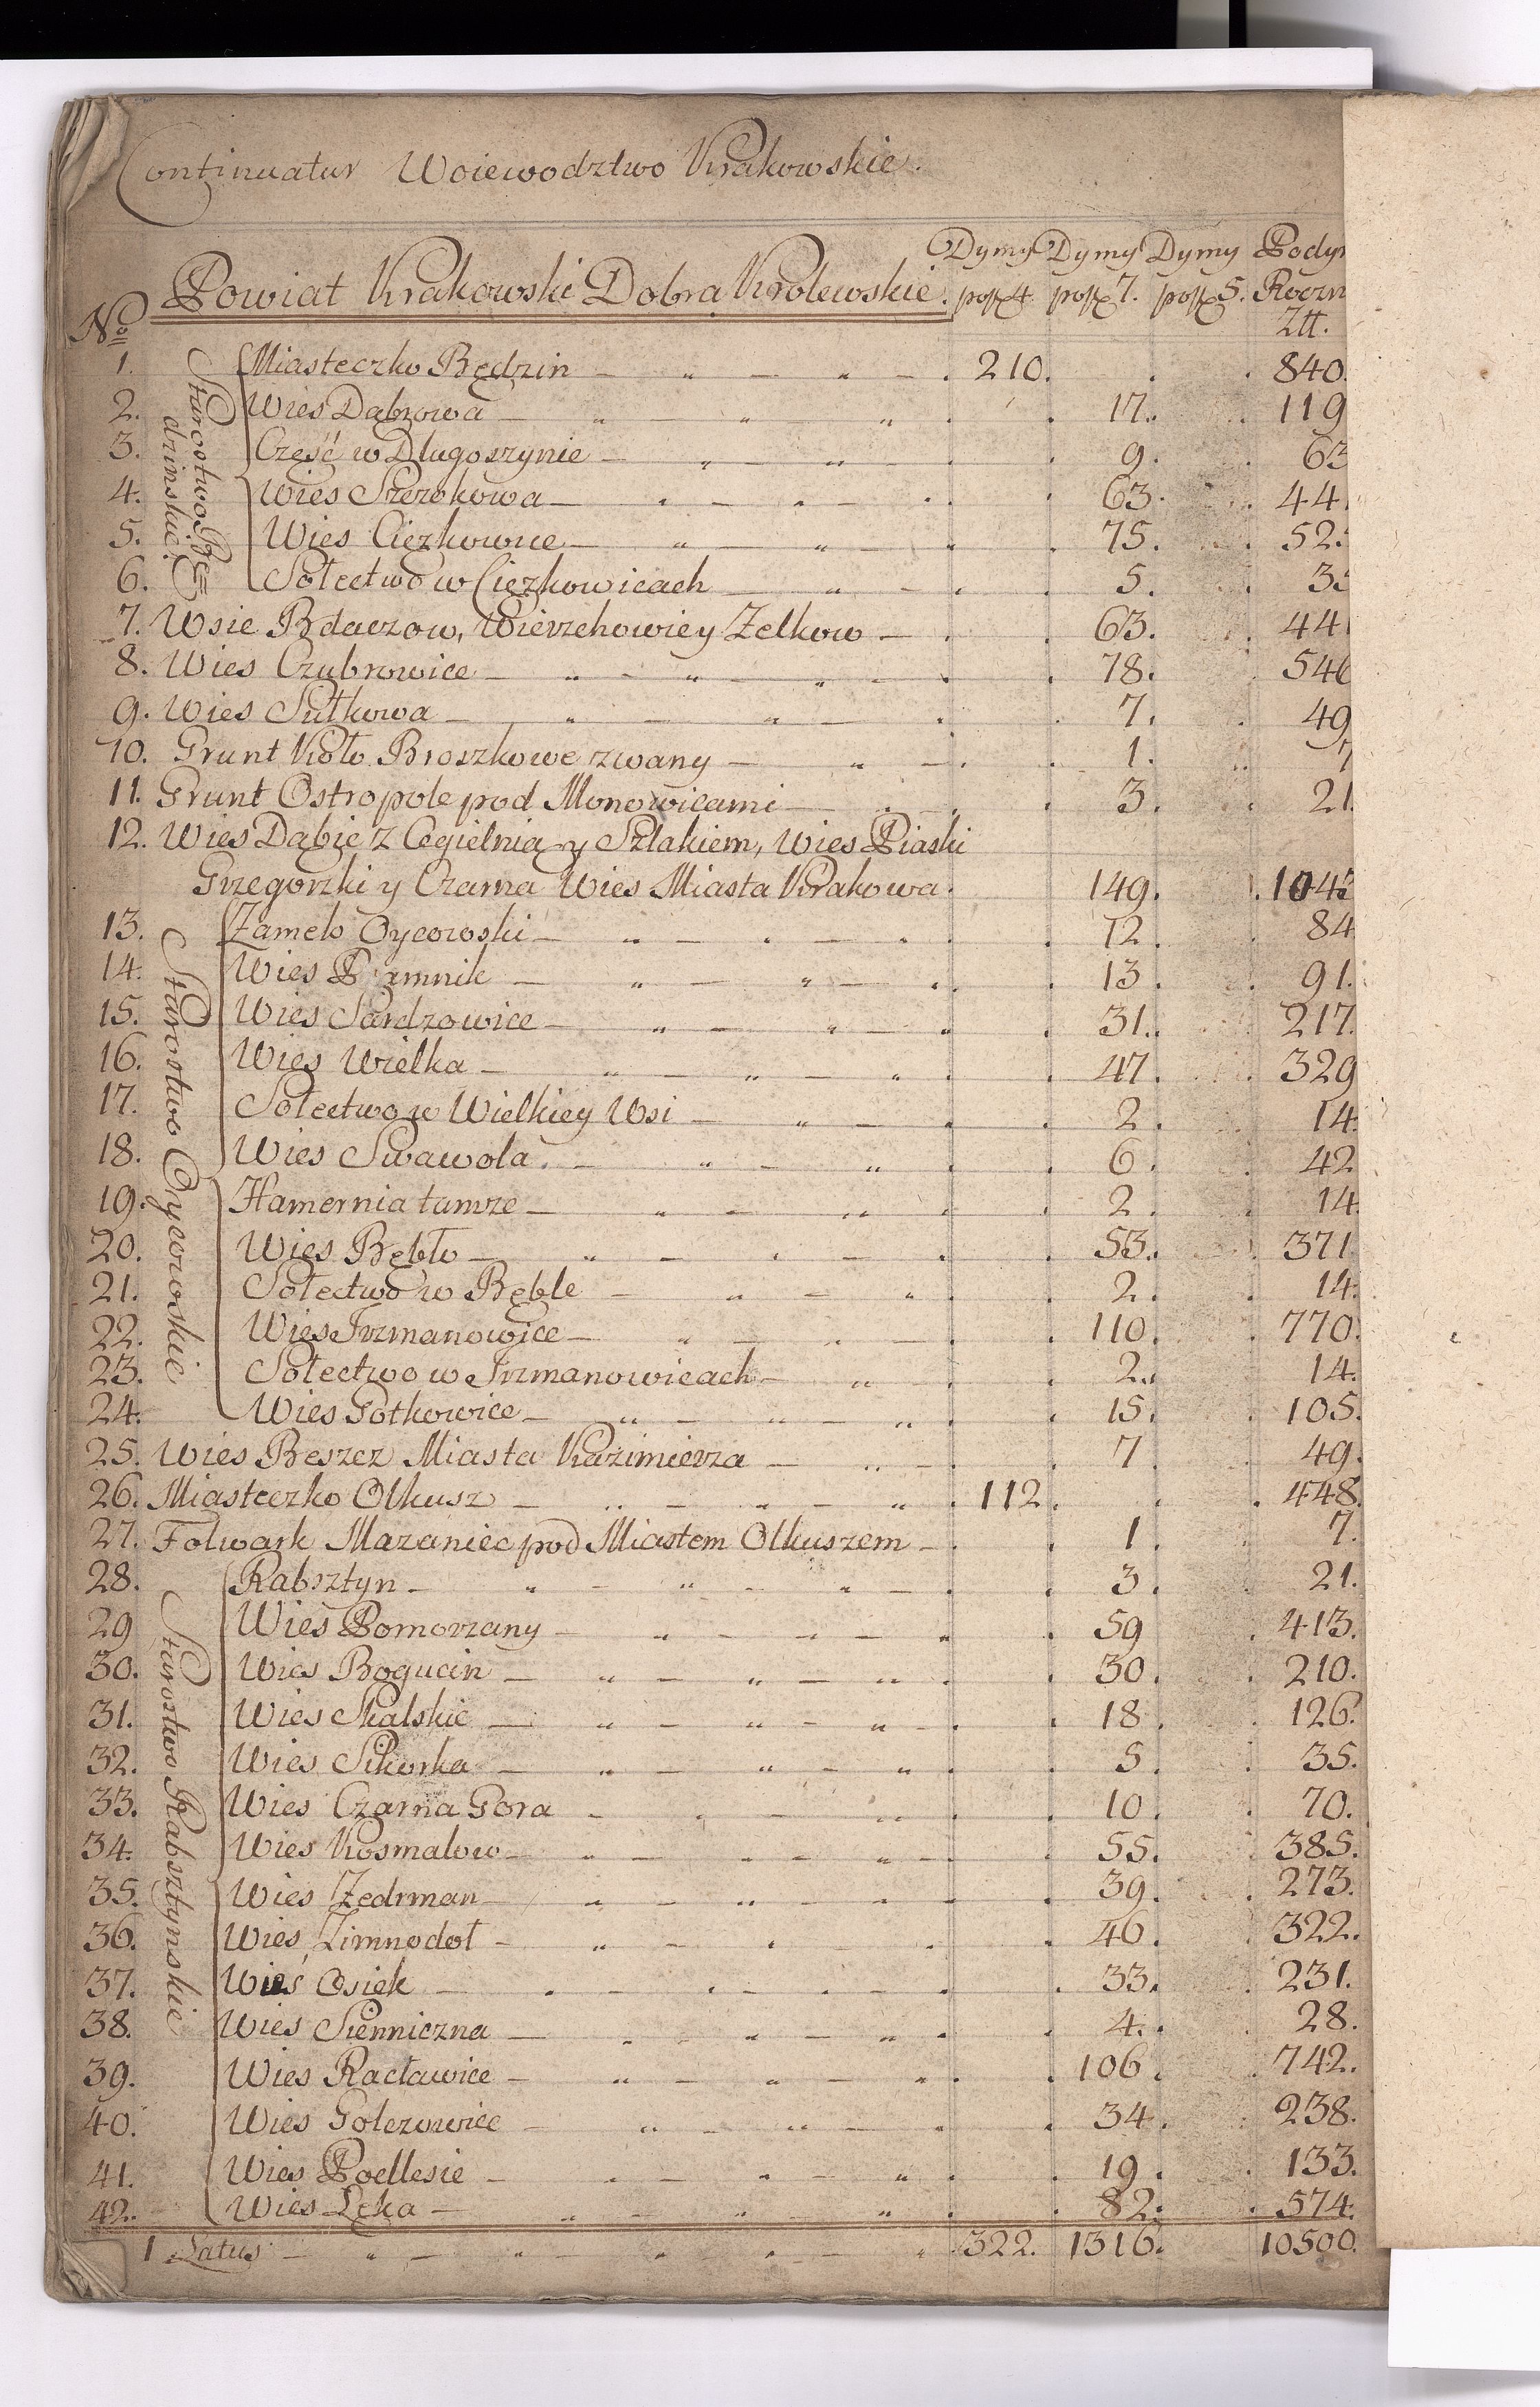 Continuatur Woiewodztwo Krakowskie.
Dymy Dymy Dymy Pody
Powiat Krakowski Dobra Krolewskie. 4. 7. 5. Roczn
No Złł.
1. Miasteczko Będzin 210. 840.
2. Wies Dąbrowa 17. 119
3. Część w Długoszynie 9. 63
4. Wies Szczakowa 63. 441
5. Wies Cięzkowice 75. 525
6. Sołectwo w Cięzkowicach 5. 35
Starostwo Bę=
dzinskie
7. Wsie Bdaczow, Wierzchowie y Zelkow 63. 441
8. Wies Czubrowice 78. 546
9. Wies Sułkowa 7. 49
10. Grunt Koło Broszkowe zwany 1. 7
11. Grunt Ostropole pod Monowicami 3. 21.
12. Wies Dąbie z Cegielnią y Szlakiem, Wies Piaski
Grzegorzki y Czarna Wies Miasta Krakowa. 149. 1043
13. Zamek Oycowski 12. 84
14. Wies Pramnik 13. 91.
15. Wies Sąrdzowice 31. 217.
16. Wies Wielka 47. 329
17. Sołectwo w Wielkiey Wsi 2. 14.
18. Wies Swawola. 6. 42
19. Hamernia tamze 2. 14.
20. Wies Bębło 53. 371.
21. Sołectwo w Bęble 2. 14.
22. Wies Jrzmanowice 110. 770.
23. Sołectwo w Jrzmanowicach 2. 14.
24. Wies Gotkowice 15. 105.
Starostwo Oycowskie
25. Wies Beszcz Miasta Kazimierza 7 49.
26. Miasteczko Olkusz 112. 448.
27. Folwark Mazaniec pod Miastem Olkuszem 1. 7.
28. Rabsztyn 3. 21.
29 Wies Pomorzany 59 413.
30. Wies Bogucin 30. 210.
31. Wies Skalskie 18. 126.
32. Wies Sikorka 5. 35.
33. Wies Czarna Gora 10. 70.
34. Wies Kosmalow 55. 385.
35. Wies Zedrman 39. 273.
36. Wies Zimnodoł 46. 322.
37. Wieś Osiek 33. 231.
38. Wies Sienniczna 4. 28.
39. Wies Racławice 106. 742.
40. Wies Golczowice 34. 238.
41. Wies Podlesie 19. 133.
42. Wies Lęka 82. 574.
Starostwo Rabsztynskie
1 Latus 322. 1316. 10500.